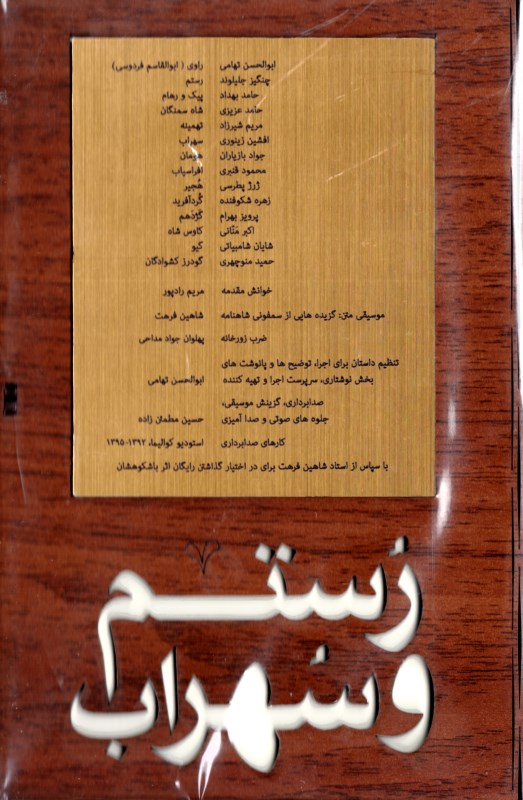 ابوالحسن تهامی راوی ( ابوالقاسم فردوسی)
چنگیز جلیلوند رستم
حامد بهداد پیک و رهام
حامد عزیزی شاه سمنگان
مریم شیرزاد تهمینه
افشین زینوری سهراب
جواد بازیاران هومان
محمود قنبری افراسیاب
ژرژ پطرسی هُجیر
زهره شکوفنده گُردآفرید
پرویز بهرام گژدَهم
اکبر مَنّانی کاوس شاه
شایان شامبیاتی گیو
حمید منوچهری گودرز کشوادگان
خوانش مقدمه مریم رادپور
موسیقی متن: گزیده هایی از سمفونی شاهنامه شاهین فرهت
ضرب زورخانه پهلوان جواد مداحی
تنظیم داستان برای اجرا، توضیح ها و پانوشت های
بخش نوشتاری، سرپرست اجرا و تهیه کننده ابوالحسن تهامی
صدابرداری، گزینش موسیقی،
جلوه های صوتی و صدا آمیزی حسین مطمئن زاده
کارهای صدابرداری استودیو کوالیما، ۱۳۹۲-۱۳۹۵
با سپاس از استاد شاهین فرهت برای در اختیار گذاشتن رایگان اثر باشکوهشان
رُستم
و سُهراب